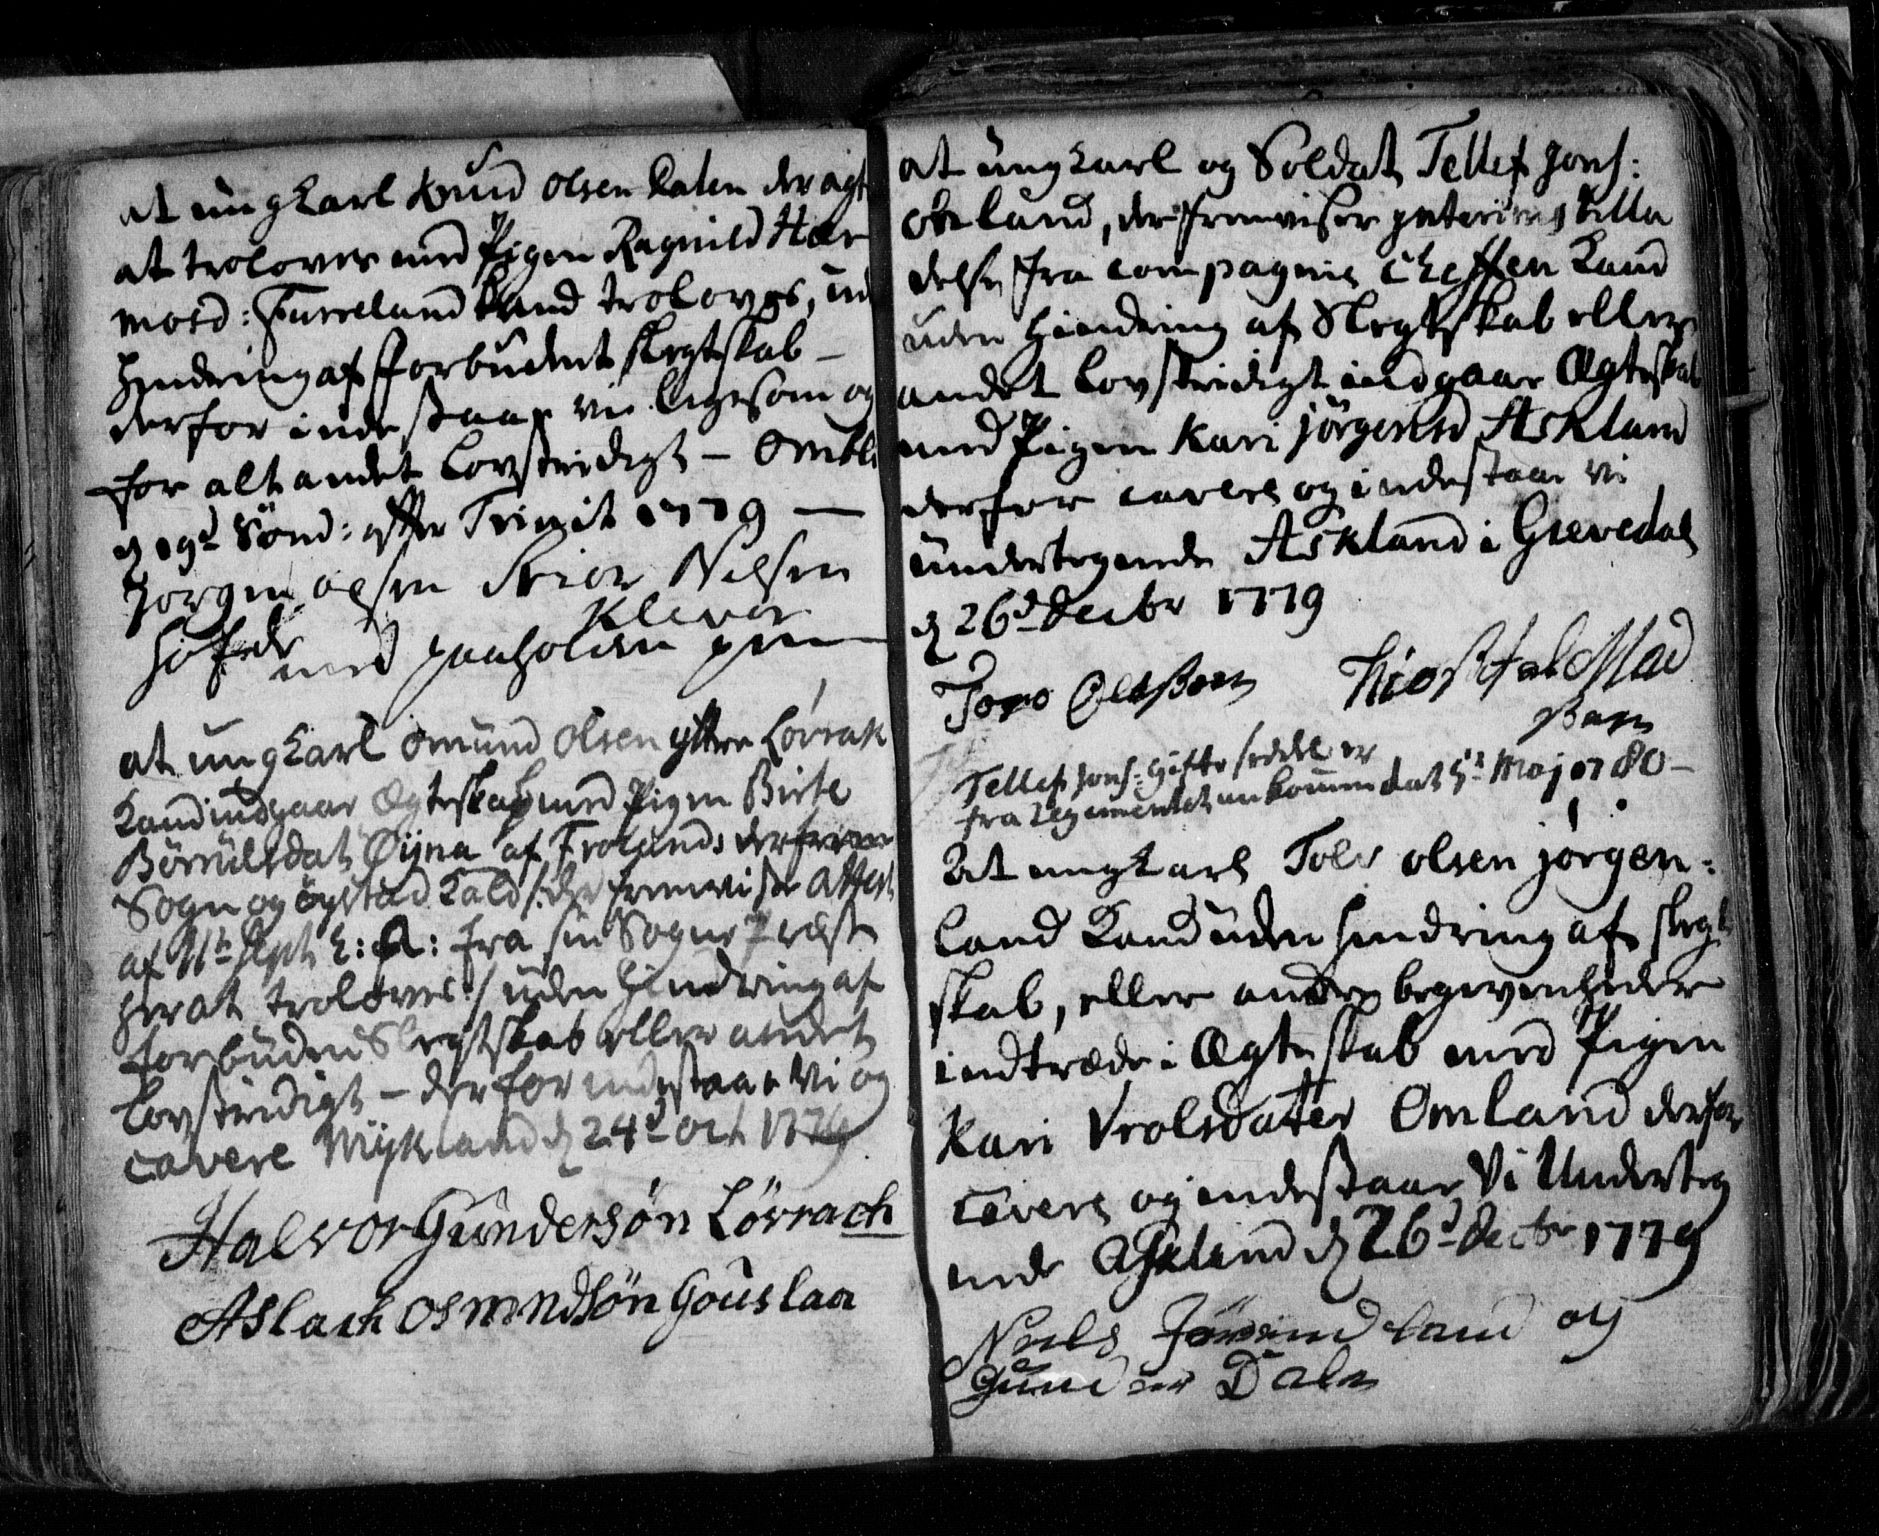 at ung Karl Knud Olsen Dalen der agt
at trolovis med Pigen Ragnild Hær
mosd: Furreland kand troloves, ud
Hindring af forbudent slegtskab –
derfor indestaar vi ligesom og
for alt andet lovstridigt – Omli
d 19d Sønd: efter Trinit 1779 –
Jørgen Olsen Nilsen
Klever
med paaholden pen
at ung Karl Omund Olsen yttre Løvrak
Kand indgaar Ægteskab med Pigen Birte
Børrulsdat Øyna af Frolands
Sogn og Øyestad Kald /: der fremviste Attest
af 11te Sept: h: A: fra sin Sogne Præst
herat troloves :/ uden Hindring af
forbuden Slegtskab eller andet
lovstridigt – derfor indestaar Vi og
cavere Mykland d 24d Oct 1779
Halvor Gundersøn Løvrach
Aslach Osmndsøn Gouslaa
at ung Karl og Soldat Tellef Jons:
land, der fremviser
delse fra Compagnie Cheffen Kand
uden Hindring af Slegtskab eller
andet lovstridigt indgaar Ægteskab
med Pigen Kari Jørgensd Askland
derfor cavere og indestaar vi
undertegnede Askland i Gievedal
d 26d Decbr 1779
Toro
Tellef Jons: Gifte seddel er
fra Regimentet ankommen dat 5d Maj 1780 –
At ung Karl Tolv Olsen Jørgen:
land Kand uden Hindring af slegt
skab, eller andre begivenheder
indtræde i Ægteskab med Pigen
Kari Vrolsdatter Omland derfor
cavere og indestaar Vi Underteg
nede Askland d 26d Decbr 1779
Niels land og
Gunder Dale